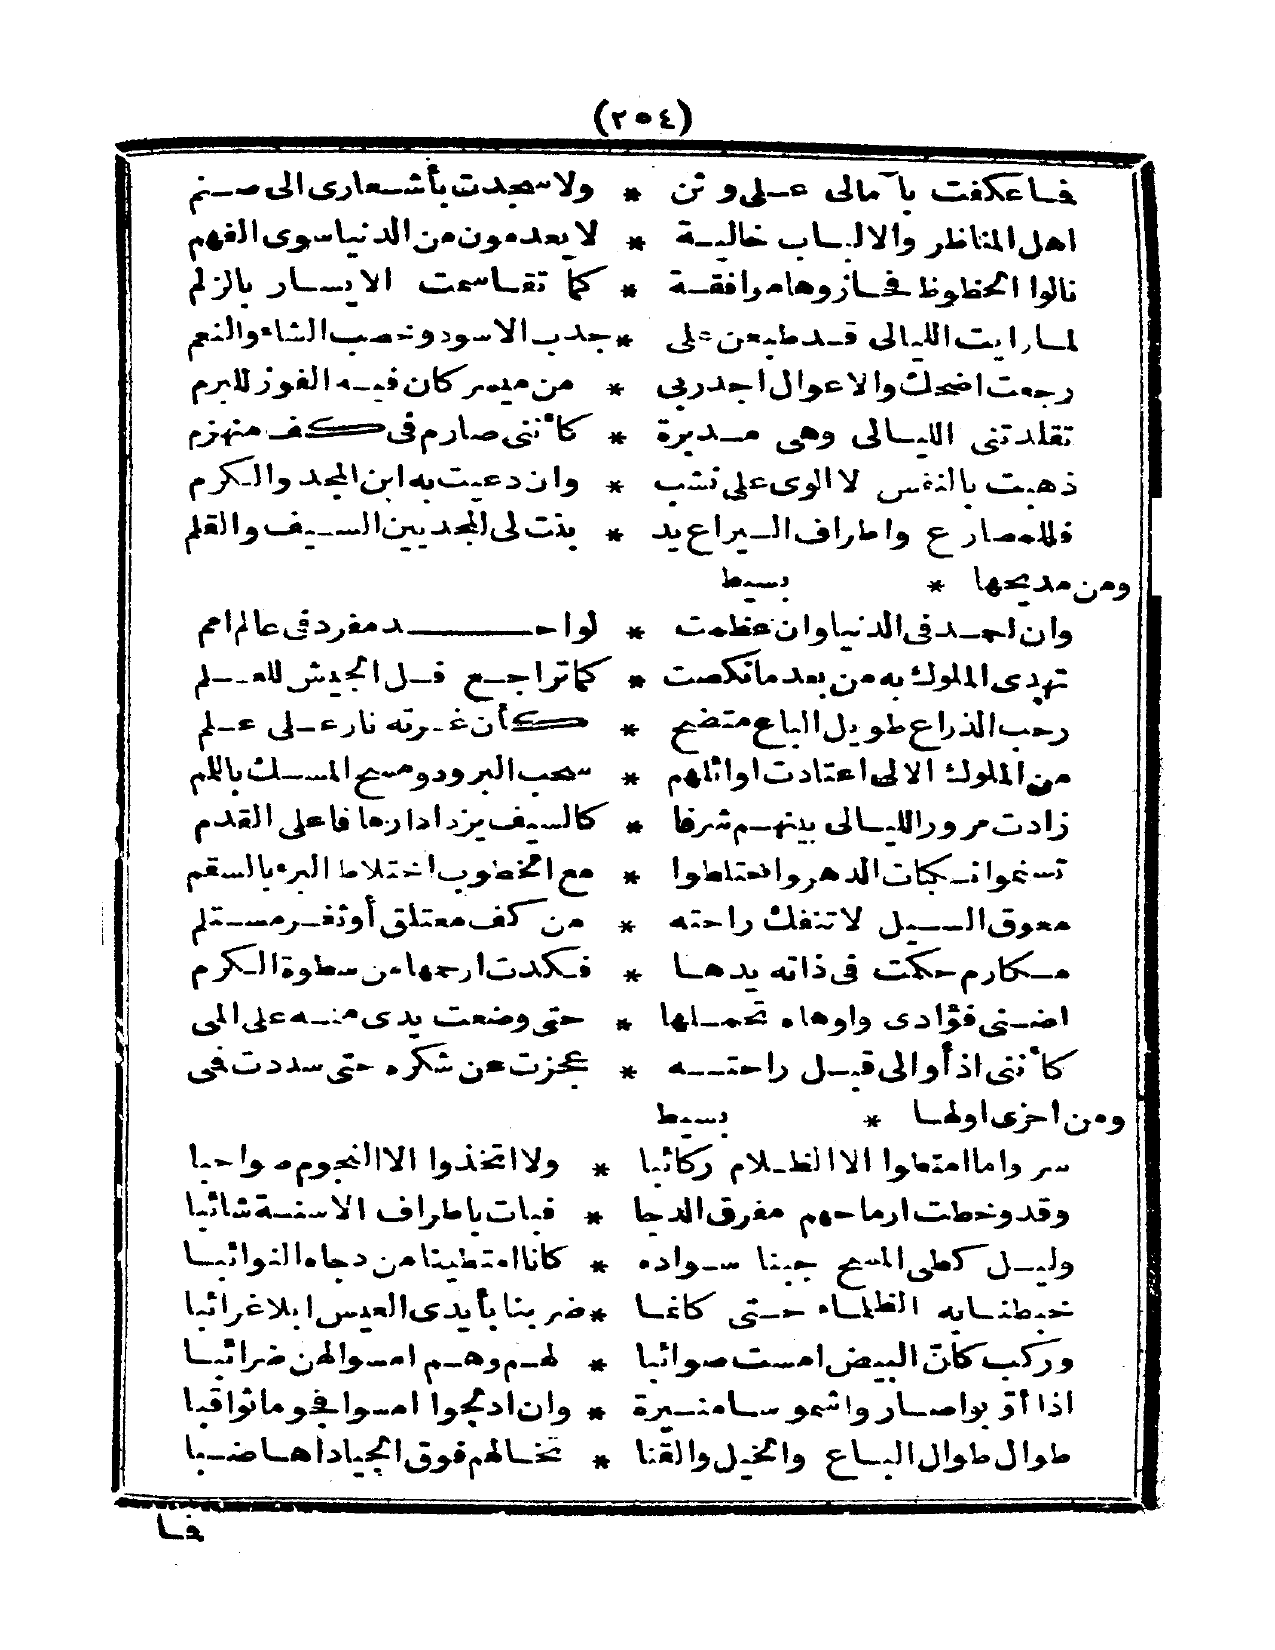 (٢٥٤)
فما عكفت بآمالى على وثن * ولا سجدت بأشعارى الى صنم
اهل المناظر والالباب خالية * لا يعدمون من الدنيا سوى الفهم
نالوا الحظوظ فحازوها موافقة * كما تقاسمت الايسار بالزلم
لما رايت الليالى قد طبعن على * جدب الاسود وخصب الشاء والنعم
رجعت اضحك والاعوال اجدر بى * من ميسر كان فيه الفوز للبرم
تقلدتنى الليالى وهى مديرة * كأننى صارم فى كف منهزم
ذهبت بالنفس لا الوى على نشب * وان دعيت به ابن المجد والكرم
فللمصارع واطراف اليراع يد * بنت لى المجد بين السيف والقلم
ومن مديحها * بسيط
وان احمد فى الدنيا وان عظمت * لواحد مفرد فى عالم امم
تهدى الملوك به من بعد ما نكصت * كما تراجع فل الجيش للعلم
رحب الذراع طويل الباع متضح * كأن غرته نار على علم
من الملوك الالى اعتادت اوائلهم * سحب البرود ومسح المسك باللمم
زادت مرور الليالى بينهم شرفا * كالسيف يزداد ارهافا على القدم
تسنموا نكبات الدهر واختلطوا * مع الخطوب اختلاط البرء بالسقم
معوق السيل لا تنفك راحته * من كف معتلق أو ثغر مستلم
مكارم حكت فى ذاته يدها * فكدت ارحمها من سطوة الكرم
اضنى فؤادى واوهاه تحملها * حتى وضعت يدى منه على المى
كأننى اذ أوالى قبل راحته * عجزت عن شكره حتى سددت فمى
ومن اخرى اولها * بسيط
سروا ما امتطوا الا الظلام ركائبا * ولا اتخذوا الا النجوم صواحبا
وقد وخطت ارماحهم مفرق الدجا * فبات باطراف الاسنة شائبا
وليل كطى المسح جبنا سواده * كانا امتطينا من دجاه النوائبا
خبطنا به الظلماء حتى كانما * ضربنا بأيدى العيس ابلا غرائبا
وركب كان البيض امست صوائبا * لهم وهم امسوا لهن ضرائبا
اذا أوبوا صاروا شموسا منيرة * وان ادلجوا امسوا نجوما ثواقبا
طوال طوال الباع والخيل والقنا * تخالهم فوق الجياد أهاضبا
فما